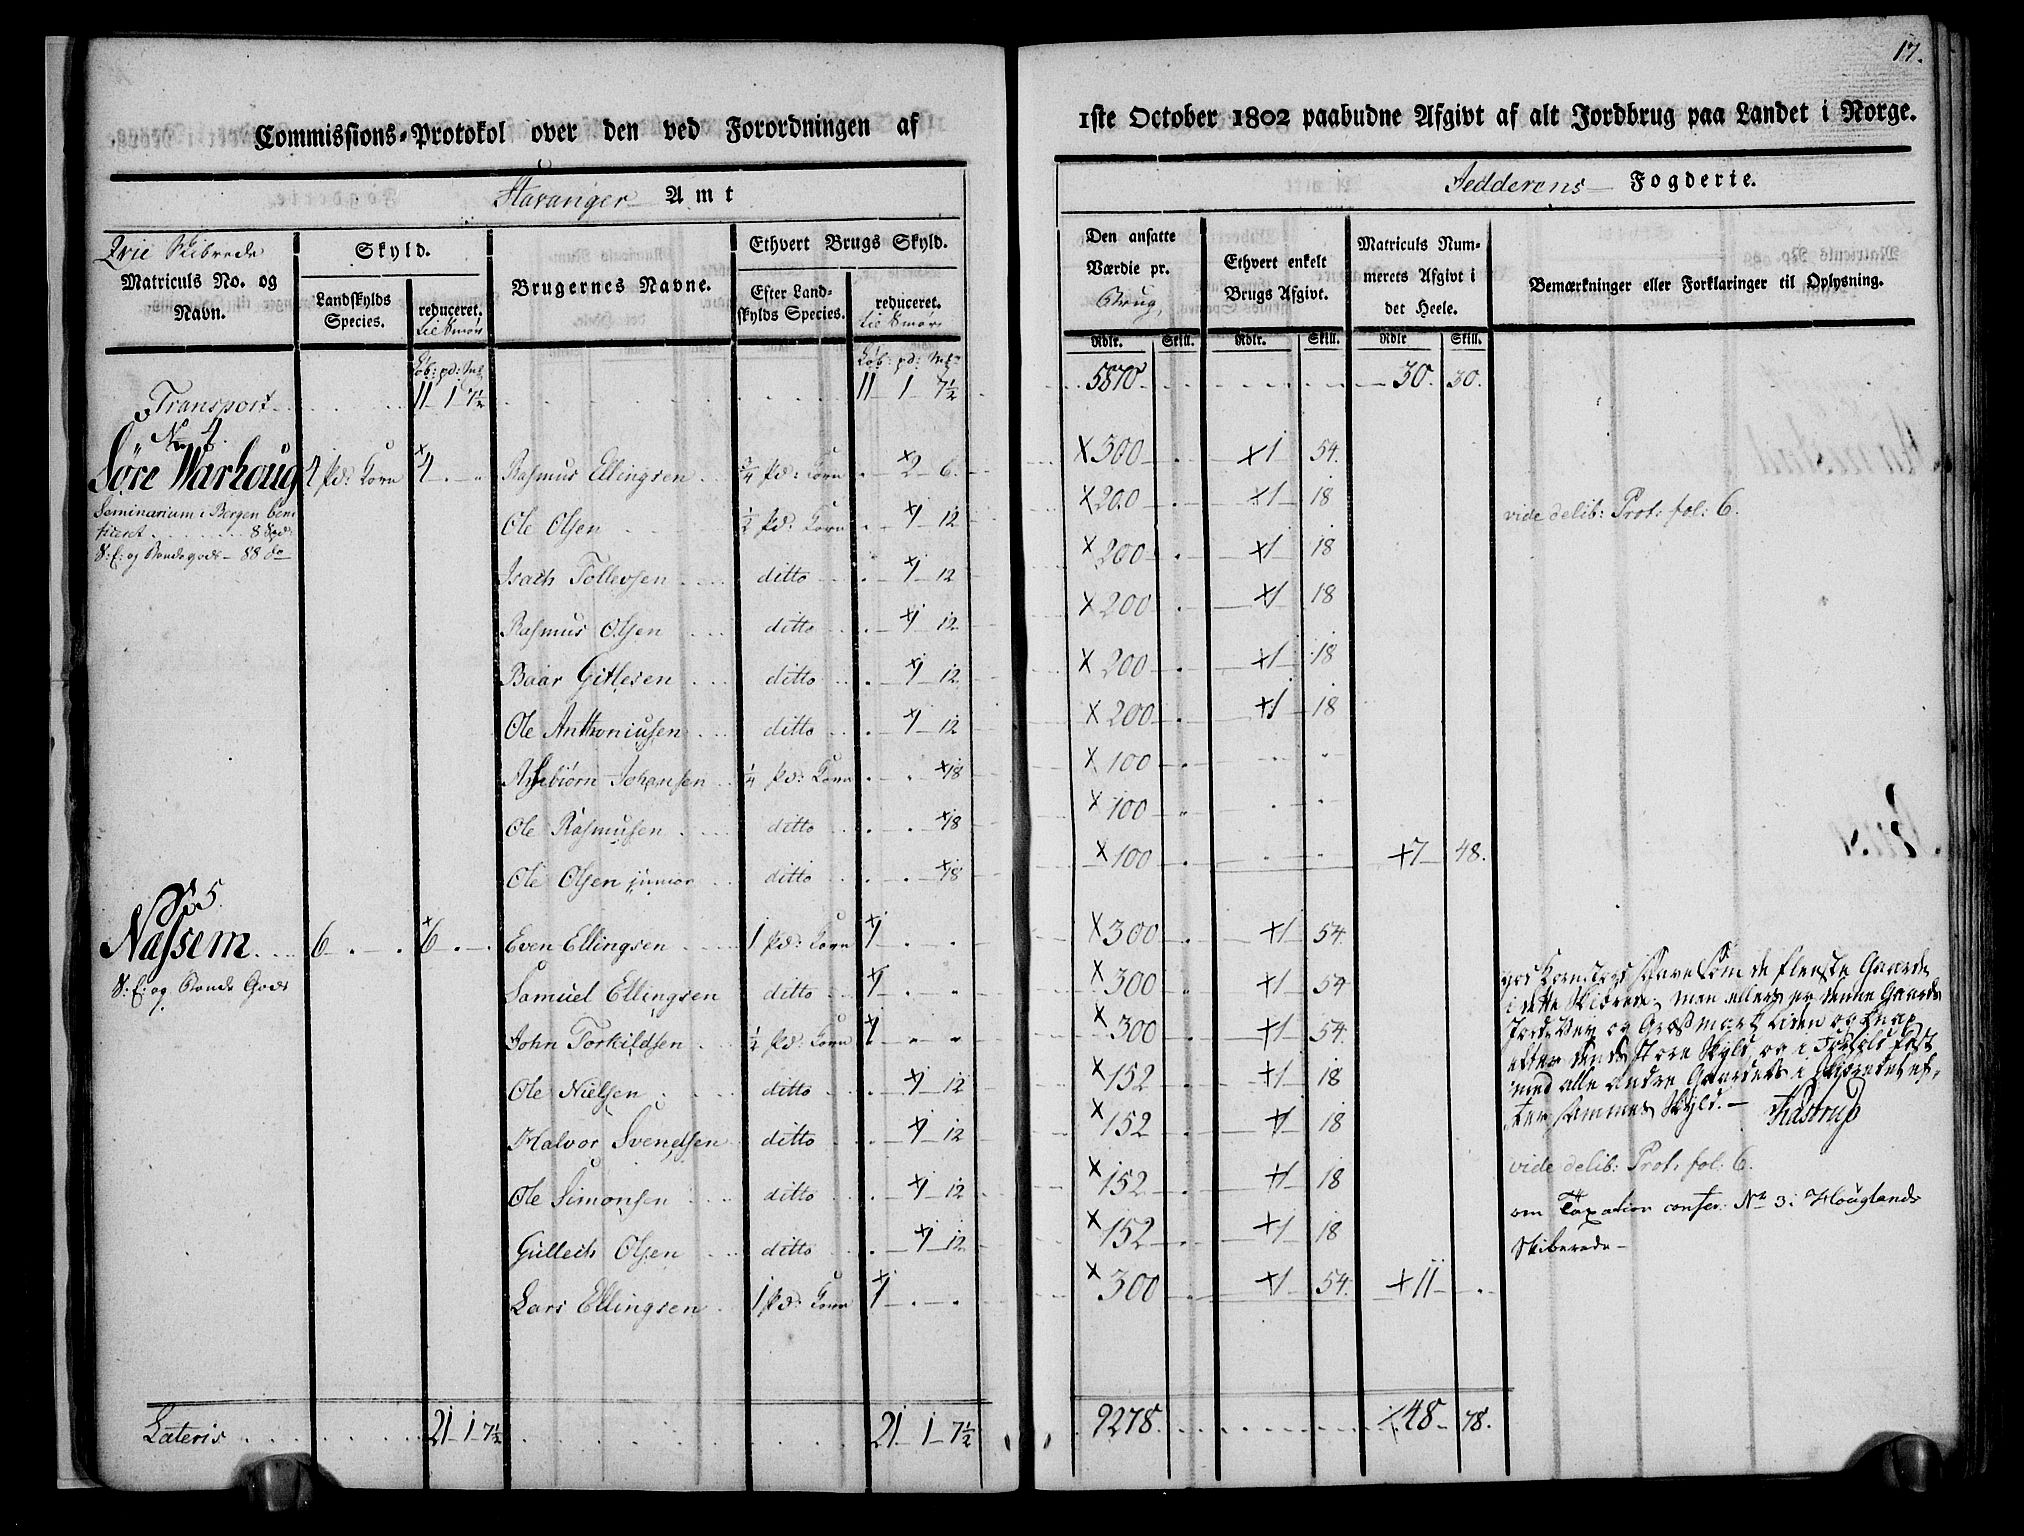 17.
Commissions-Protokol over den ved Forordningen af
1ste October 1802 paabudne Afgivt af alt Jordbrug paa Landet i Norge.
Stavanger Amt
Jedderens Fogderie.
Qvie Skibrede
Matriculs No. og Navn.
Skyld.
Landskylds Species.
reduceret.
Brugernes Navne.
Ethvert Brugs Skyld.
Efter Landskylds Species.
reduceret.
Den ansatte Værdie pr. Brug,
Ethvert enkelt Brugs Afgivt.
Matriculs Nummerets Afgivt i det Heele.
Bemærkninger eller Forklaringer til Oplysning.
Rdlr. Skill. Rdlr. Skill. Rdlr Skill.
Transport 11 1 7½ 11 1 7½ 5870 30. 30.
No 4.
Söre Warhoug 4 pd: Korn 4 Rasmus Ellingsen ¾ pd: Korn 2 6. 300 1 54.
Seminarium i Bergen bene-
ficeret 8
S: E: og Bondegods 88 do
Ole Olsen ½ pd: Korn 1 12 200 1 18 vide delib: Prot: fol: 6.
Isach Tollevsen ditto 1 12 200 1 18
Rasmus Olsen ditto 1 12 200 1 18
Baar Gitlesen ditto 1 12 200 1 18
Ole Anthoniusen ditto 1 12 200 1 18
Assebiörn Johansen ¼ pd: Korn 18 100
Ole Rasmusen ditto 18 100
Ole Olsen junior ditto 18 100 7 48.
No 5.
Nassem 6 6 Even Ellingsen 1 pd: Korn 1 300 1 54.
S: E: og Bonde Gods
Samuel Ellingsen ditto 1 300 1 54
John Torkildsen ½ pd: Korn 1 300 1 54.
Ole Nielsen ditto 1 12 152 1 18
Halvor Svendsen ditto 1 12 152 1 18
Ole Simonsen ditto 1 12 152 1 18
Gullech Olsen ditto 1 12 152 1 18
Lars Ellingsen 1 pd: Korn 1 300 1 54. 11
som de fleeste Gaarde
i dette Skibrede men ellers er denne Gaards
efter dends store Skyld, og i
med alle andre Gaarder i Skibredet ef-
ter sammes Skyld. Kastrup
vide delib: Prot: fol: 6.
om Taxation confer: No 3: Houglands
Skiberede
Lateris 21 1 7½ 21 1 7½ 9278. 48 78.